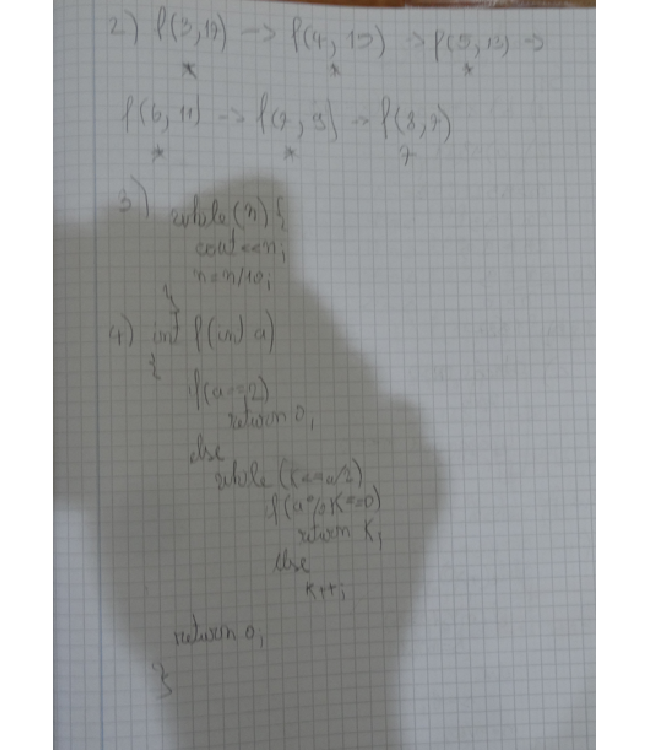 2) f(3,17) -> f(4, 15) -> f(5, 13) ->
* * *
f(6, 11) -> f(7, 9) -> f(8,7)
* * 7
3) while(n){
cout<<n;
n=n/10;
}
4) int f(int a)
{
if(a==2)
return 0;
else
while (K<=a/2)
if(a%K==0)
return K;
else
K++;
return 0;
}